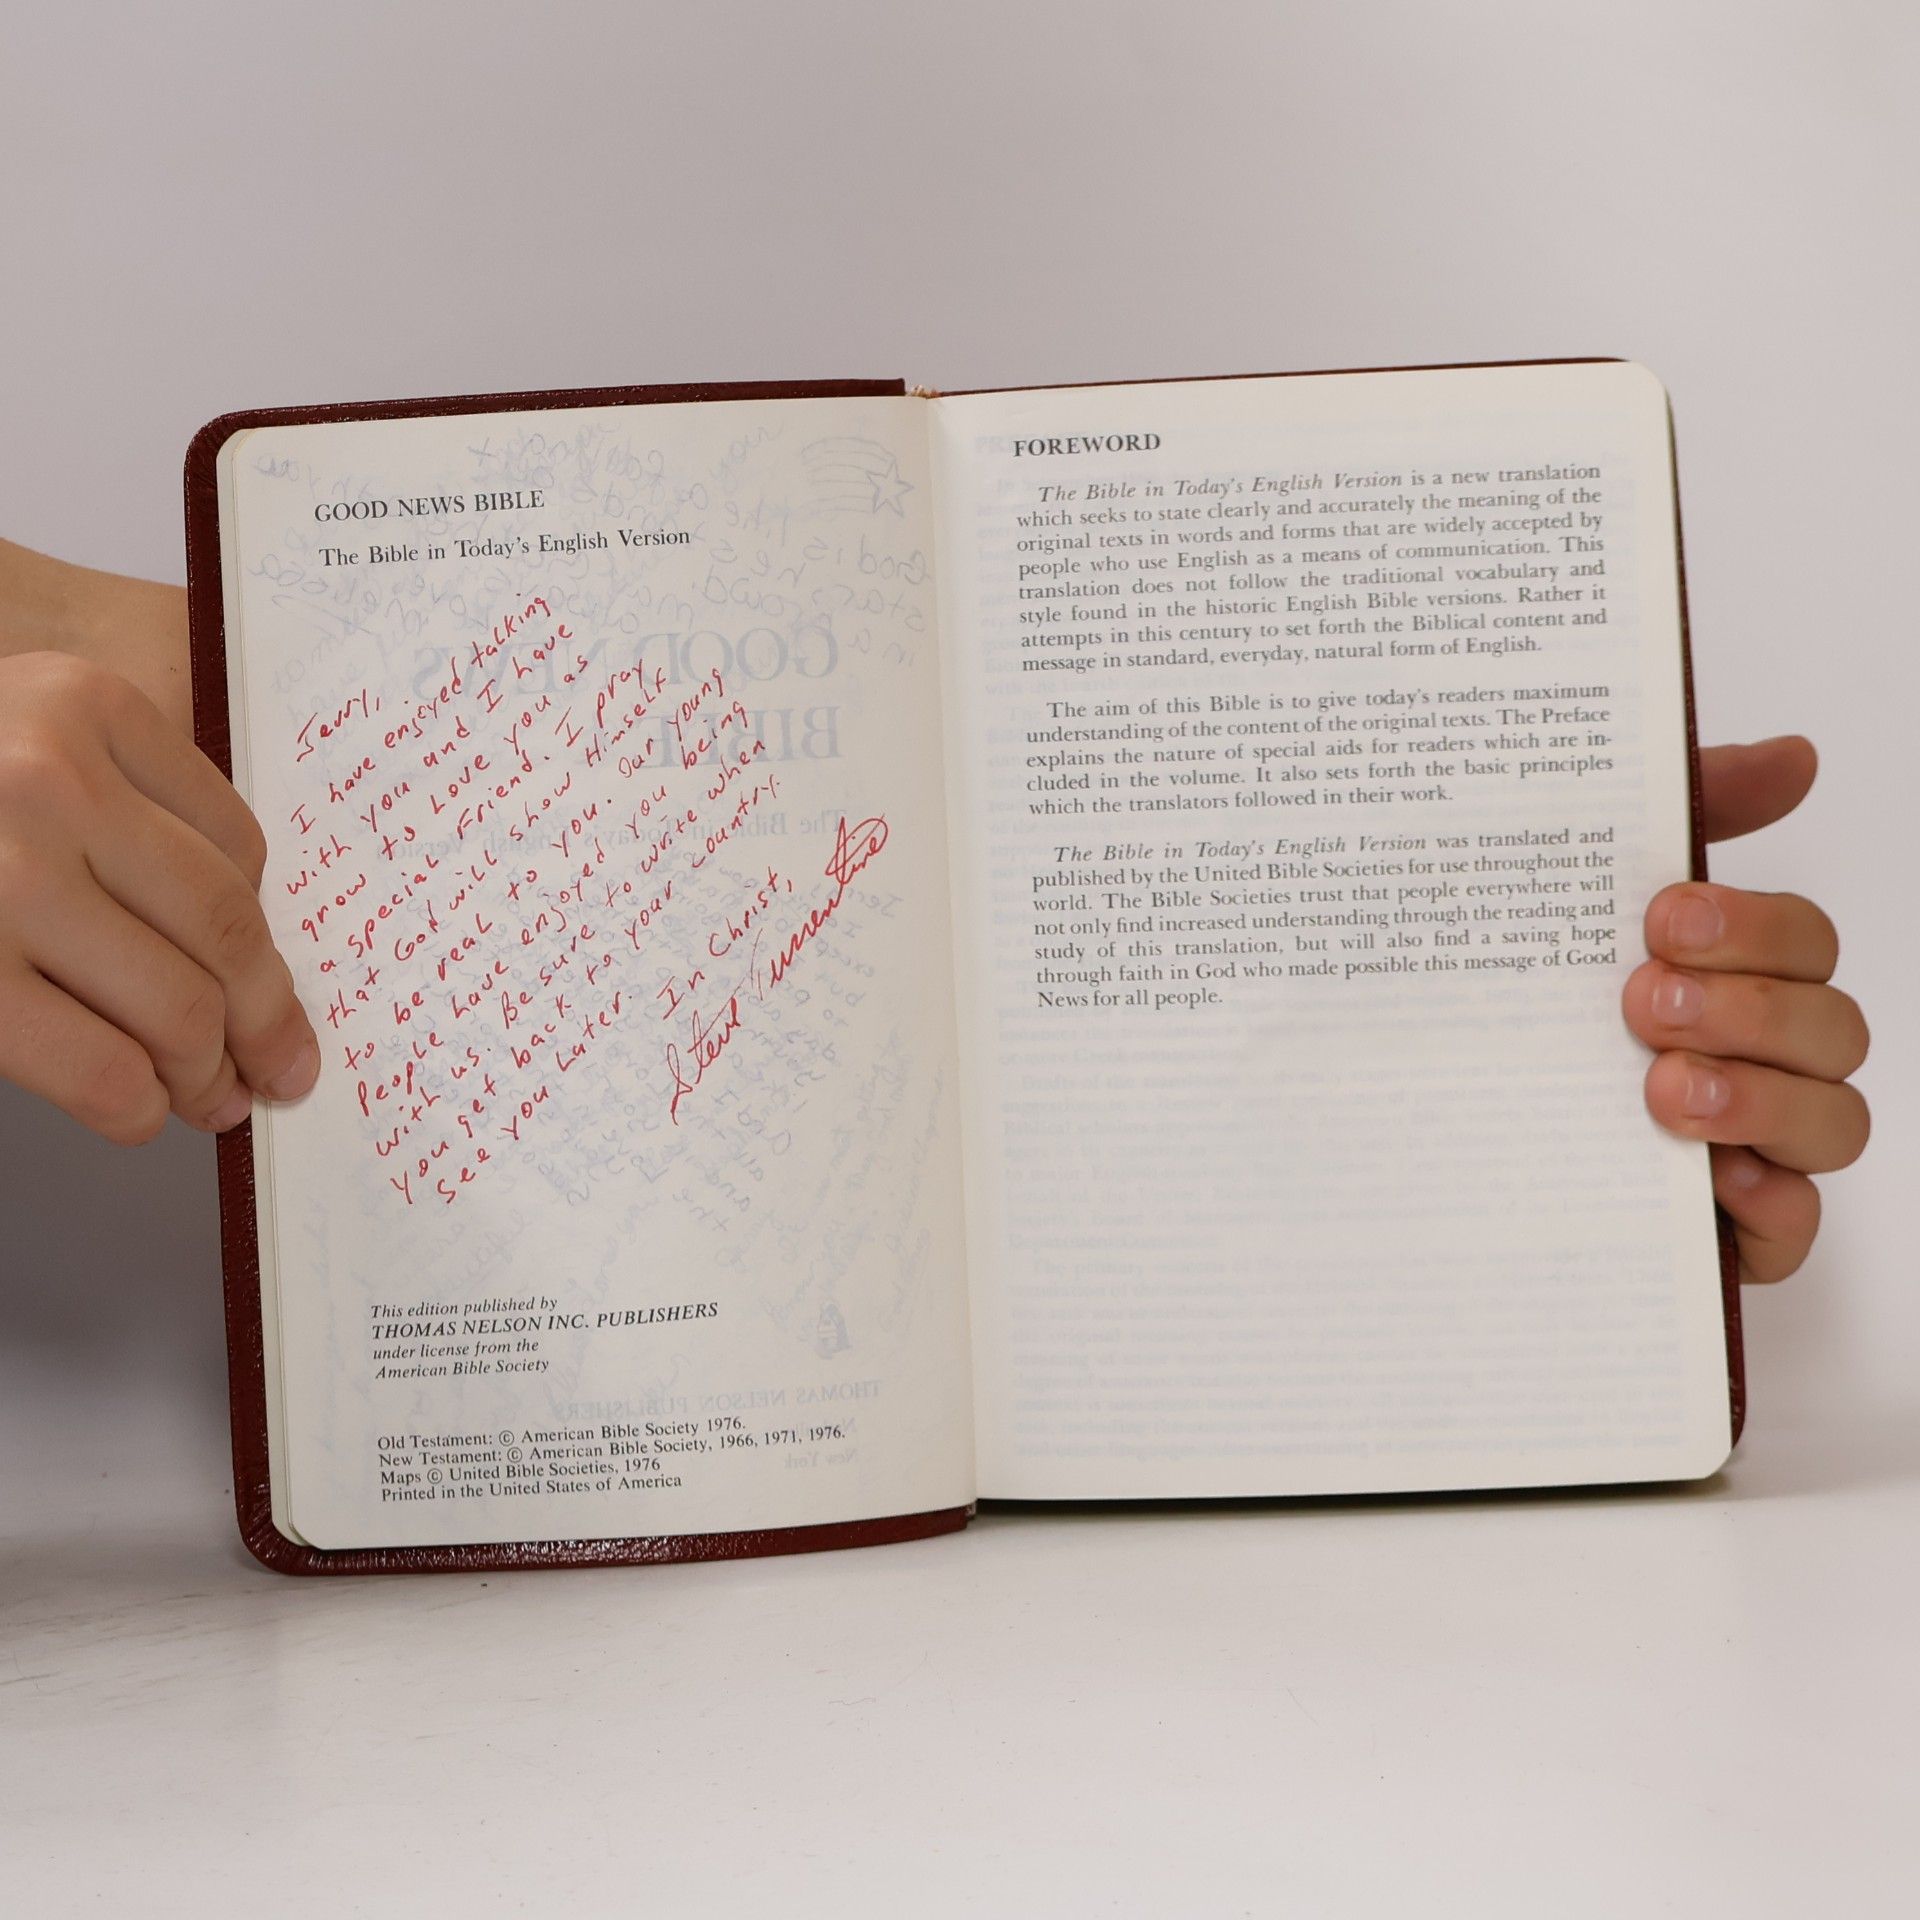 GOOD NEWS BIBLE
The Bible in Today's English Version
Jerry,
I have enjoyed talking
with you and I have
grow to love you as
a special Friend. I pray
that God will show Himself
to be real to you. Our young
People have enjoyed you being
with us. Be sure to write when
you get back to your country.
See you Later. In Christ,
Steve Turrentine
This edition published by
THOMAS NELSON INC. PUBLISHERS
under license from the
American Bible Society
Old Testament: © American Bible Society 1976.
New Testament: © American Bible Society, 1966, 1971, 1976.
Maps © United Bible Societies, 1976
Printed in the United States of America
FOREWORD
The Bible in Today's English Version is a new translation
which seeks to state clearly and accurately the meaning of the
original texts in words and forms that are widely accepted by
people who use English as a means of communication. This
translation does not follow the traditional vocabulary and
style found in the historic English Bible versions. Rather it
attempts in this century to set forth the Biblical content and
message in standard, everyday, natural form of English.
The aim of this Bible is to give today's readers maximum
understanding of the content of the original texts. The Preface
explains the nature of special aids for readers which are in-
cluded in the volume. It also sets forth the basic principles
which the translators followed in their work.
The Bible in Today's English Version was translated and
published by the United Bible Societies for use throughout the
world. The Bible Societies trust that people everywhere will
not only find increased understanding through the reading and
study of this translation, but will also find a saving hope
through faith in God who made possible this message of Good
News for all people.